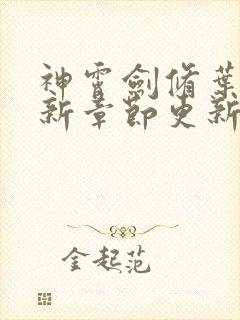 神霄劍脩葉
新章節更新
金起范